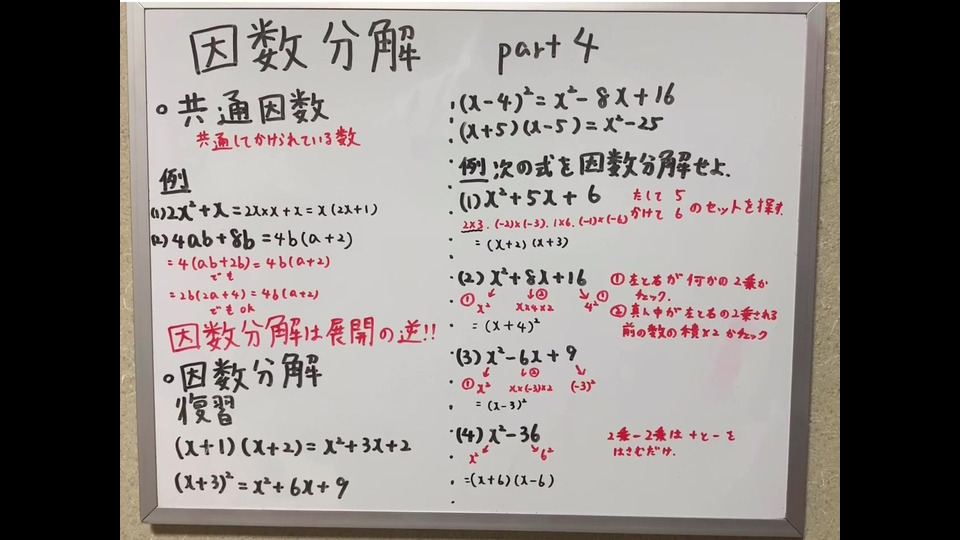 因数分解 part 4
○共通因数
共通してかけられている数
例
(1) 2x²+x=2x×x+x=x(2x+1)
(2) 4ab+8b=4b(a+2)
=4(ab+2b)=4b(a+2)
でも
=2b(2a+4)=4b(a+2)
でもok
因数分解は展開の逆!!
○因数分解
復習
(x+1)(x+2)=x²+3x+2
(x+3)²=x²+6x+9
(x-4)²=x²-8x+16
(x+5)(x-5)=x²-25
例 次の式を因数分解せよ.
(1) x²+5x+6
たして 5
かけて 6 のセットを探す.
2×3.(-2)×(-3).1×6.(-1)×(-6)
=(x+2)(x+3)
(2) x²+8x+16
① x² ② x×4×2 4² ①
①左と右が何かの2乗か
チェック.
②真ん中が左と右の2乗される
前の数の積×2かチェック
=(x+4)²
(3) x²-6x+9
① x² ② x×(-3)×2 (-3)²
=(x-3)²
(4) x²-36
x² 6²
2乗-2乗は+と-を
はさむだけ.
=(x+6)(x-6)